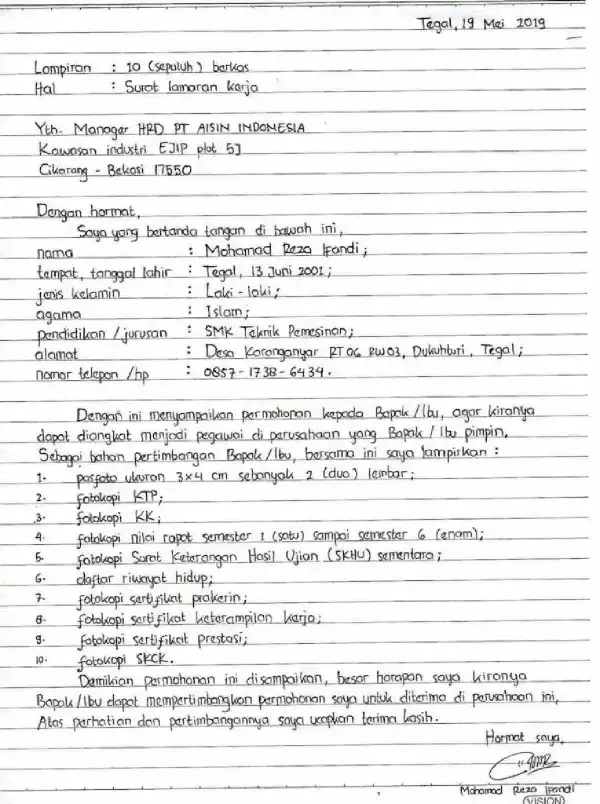 Tegal, 19 Mei 2019
Lampiran : 10 (sepuluh) berkas
Hal : Surat lamaran kerja
Yth. Manager HRD PT AISIN INDONESIA
Kawasan industri EJIP plot 5J
Cikarang - Bekasi 17550
Dengan hormat,
Saya yang bertanda tangan di bawah ini,
nama : Mohamad Reza Ifandi;
tempat, tanggal lahir : Tegal, 13 Juni 2001;
jenis kelamin : Laki - laki;
agama : Islam;
pendidikan / jurusan : SMK Teknik Pemesinan;
alamat : Desa Karanganyar RT06 RW03, Dukuhturi, Tegal;
nomor telepon /hp : 0857-1738-6434.
Dengan ini menyampaikan permohonan kepada Bapak/Ibu, agar kiranya
dapat diangkat menjadi pegawai di perusahaan yang Bapak / Ibu pimpin.
Sebagai bahan pertimbangan Bapak/Ibu, bersama ini saya lampirkan :
1. pasfoto ukuran 3x4 cm sebanyak 2 (dua) lembar;
2. fotokopi KTP;
3. fotokopi KK;
4. fotokopi nilai rapot semester 1 (satu) sampai semester 6 (enam);
5. fotokopi Surat Keterangan Hasil Ujian (SKHU) sementara;
6. daftar riwayat hidup;
7. fotokopi sertifikat prakerin;
8. fotokopi sertifikat keterampilan kerja;
9. fotokopi sertifikat prestasi;
10. fotokopi SKCK.
Demikian permohonan ini disampaikan, besar harapan saya kiranya
Bapak/Ibu dapat mempertimbangkan permohonan saya untuk diterima di perusahaan ini,
Atas perhatian dan pertimbangannya saya ucapkan terima kasih.
Hormat saya,
Mohamad Reza Ifandi
(VISION)